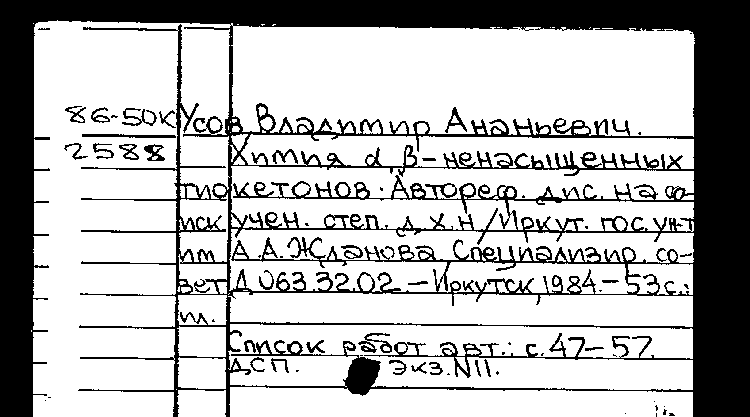 86-50к Усов, Владимир Ананьевич.
2588 Химия α, β-ненасыщенных
тиокетонов: Автореф. дис. на со-
иск. учен. степ. д.х.н. / Иркут. гос. ун-т
им. А.А. Жданова. Специализир. со-
вет Д 063.32.02. - Иркутск, 1984. - 53 с.:
ил.
Список работ авт.: с. 47-57.
ДСП. Экз. N11.